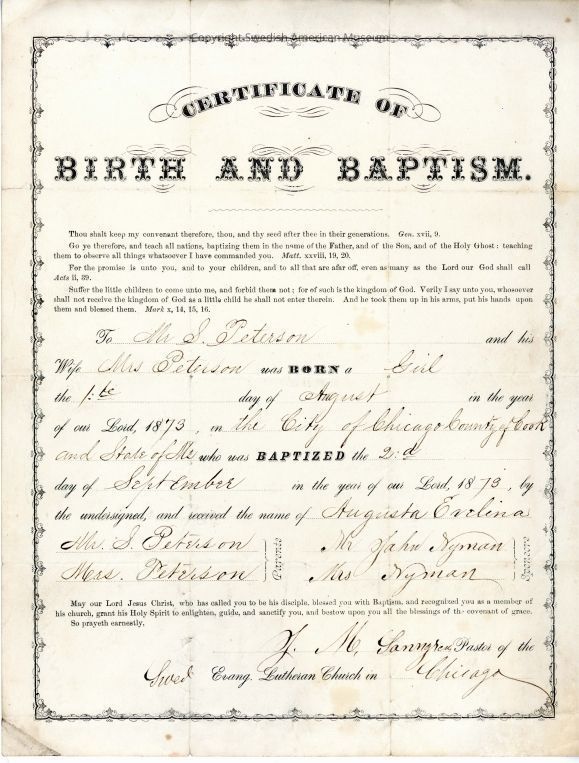 Copyright Swedish American Museum
CERTIFICATE OF
BIRTH AND BAPTISM.
Thou shalt keep my convenant therefore, thou, and thy seed after thee in their generations. Gen. xvii, 9.
Go ye therefore, and teach all nations, baptizing them in the name of the Father, and of the Son, and of the Holy Ghost: teaching
them to observe all things whatsoever I have commanded you. Matt. xxviii, 19, 20.
For the promise is unto you, and to your children, and to all that are afar off, even as many as the Lord our God shall call
Acts ii, 39.
Suffer the little children to come unto me, and forbid them not; for of such is the kingdom of God. Verily I say unto you, whosoever
shall not receive the kingdom of God as a little child he shall not enter therein. And he took them up in his arms, put his hands upon
them and blessed them. Mark x, 14, 15, 16.
To Mr S. Peterson and his
Wife Mrs Peterson was BORN a Girl
the 1: day of August in the year
of our Lord, 1873, in the City of Chicago County of Cook
and State of Ills who was BAPTIZED the 2:d
day of September in the year of our Lord, 1873, by
the undersigned, and received the name of Augusta Evelina
Mr. S. Peterson Parents Mr John Nyman
Mrs. Peterson Mrs Nyman Sponsors
May our Lord Jesus Christ, who has called you to be his disciple, blessed you with Baptism, and recognized you as a member of
his church, grant his Holy Spirit to enlighten, guide, and sanctify you, and bestow upon you all the blessings of the covenant of grace.
So prayeth earnestly,
Pastor of the
Swed Evang. Lutheran Church in Chicago